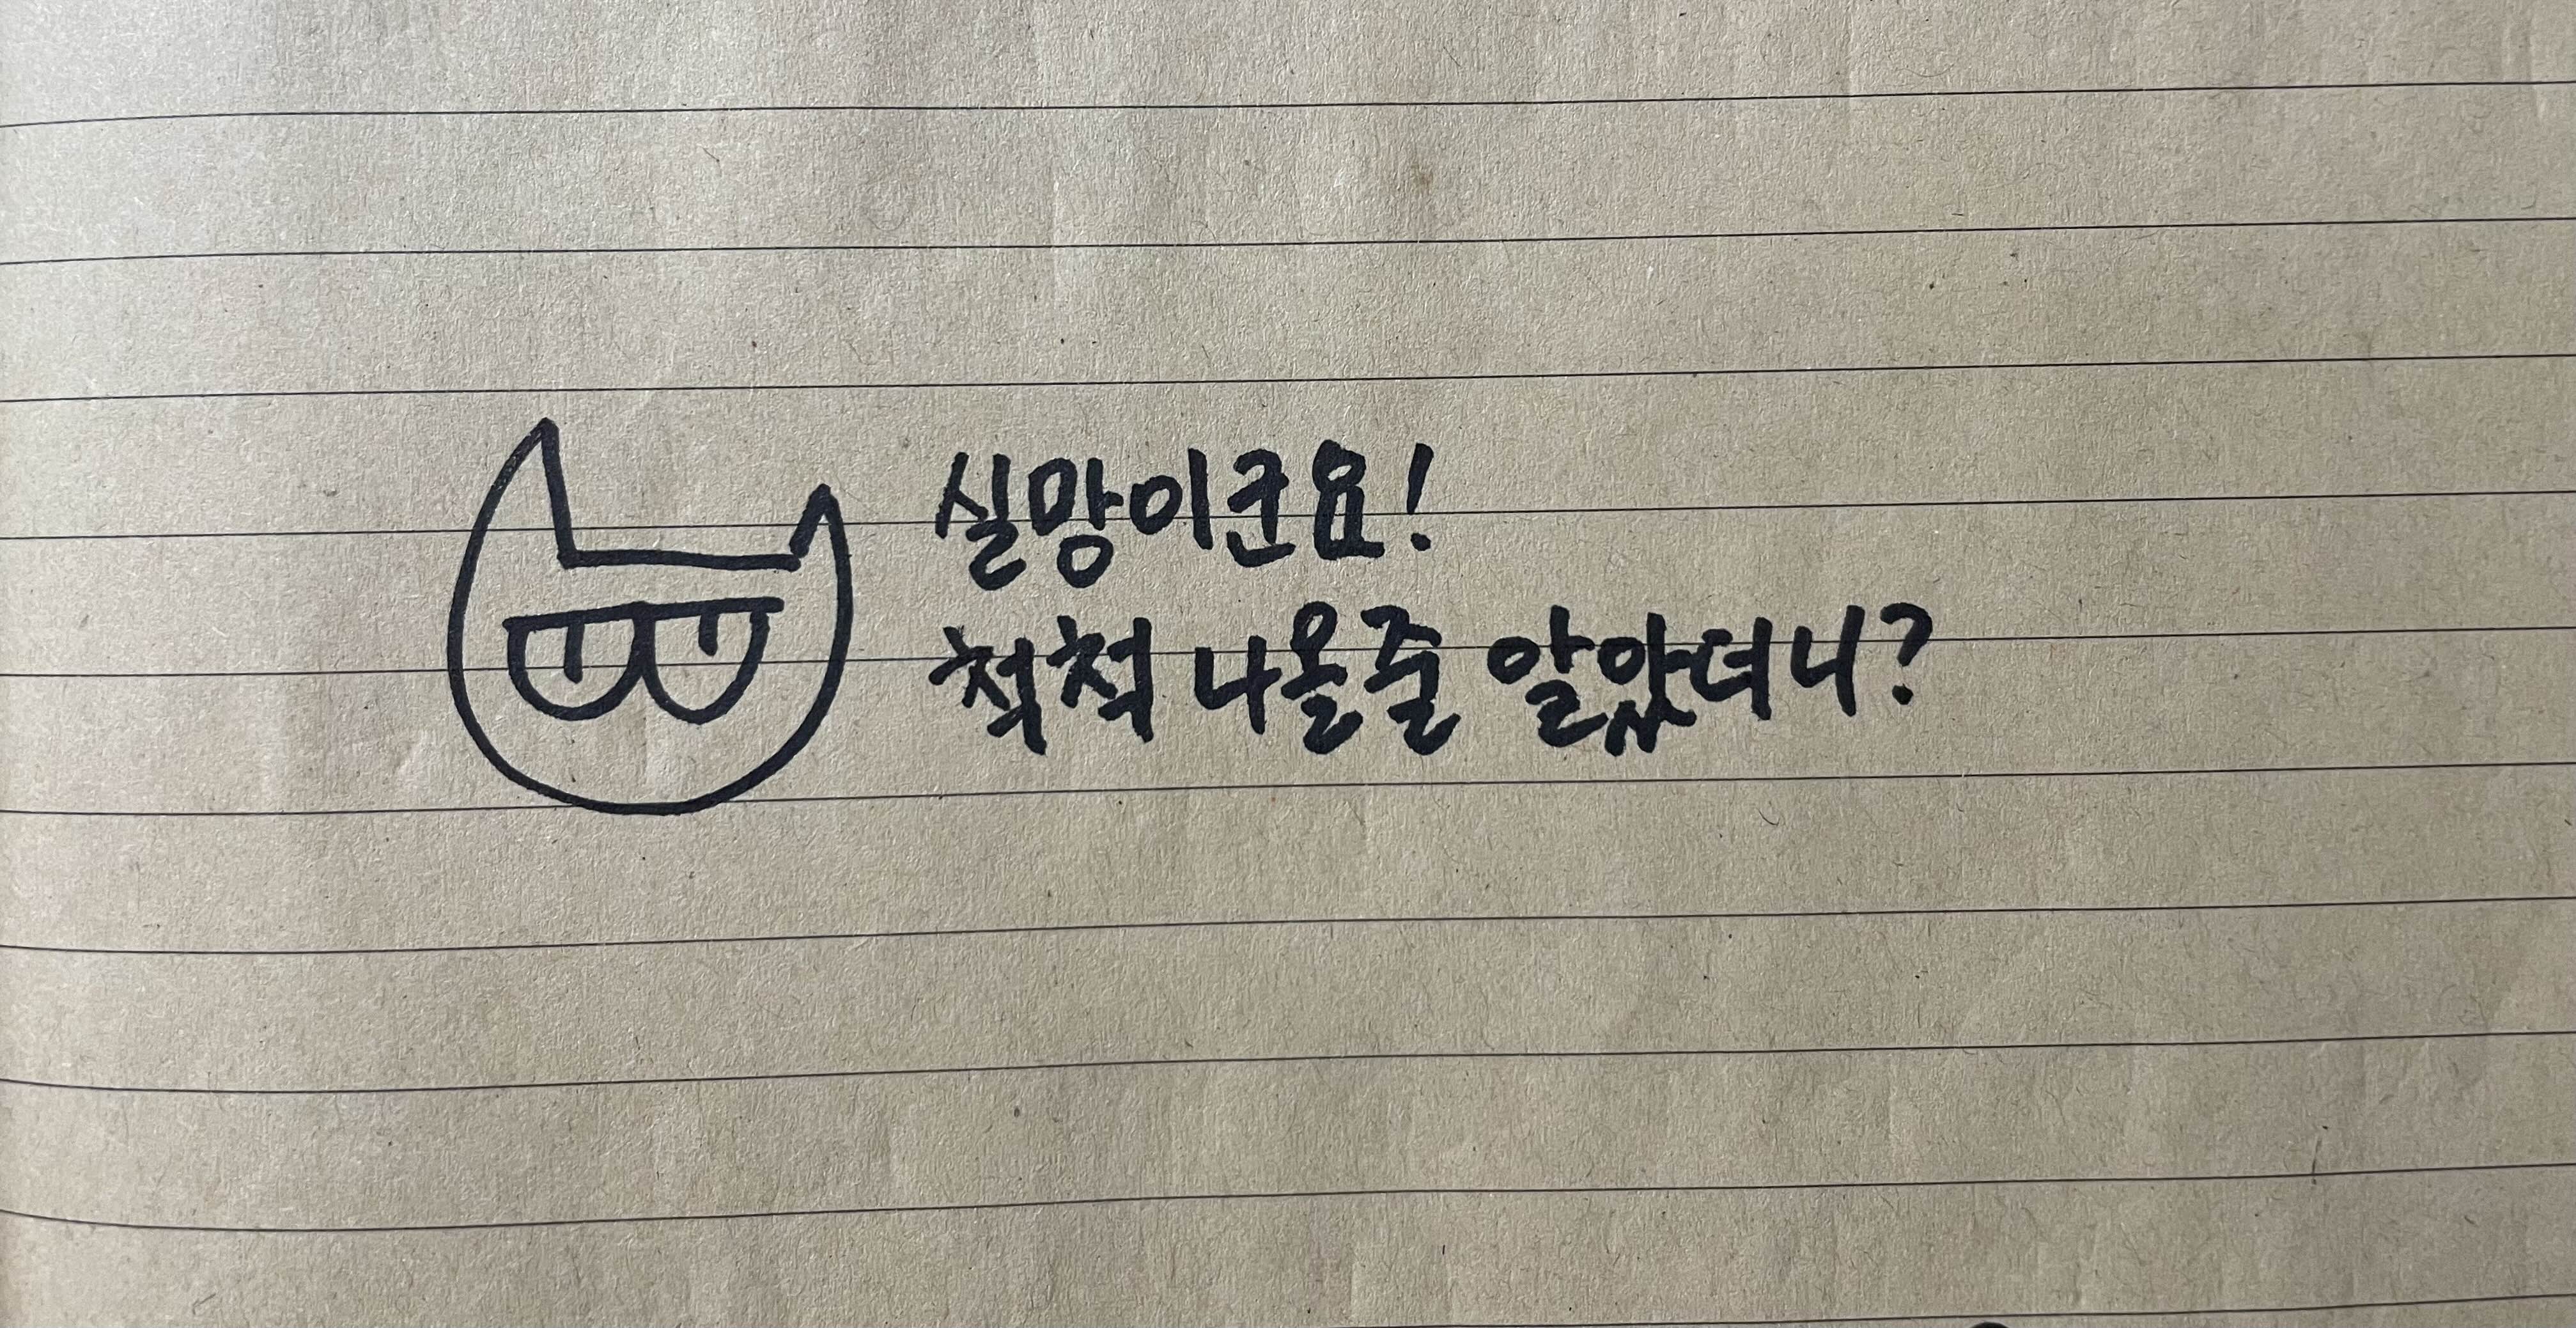 실망이군요!
척척 나올줄 알았더니?